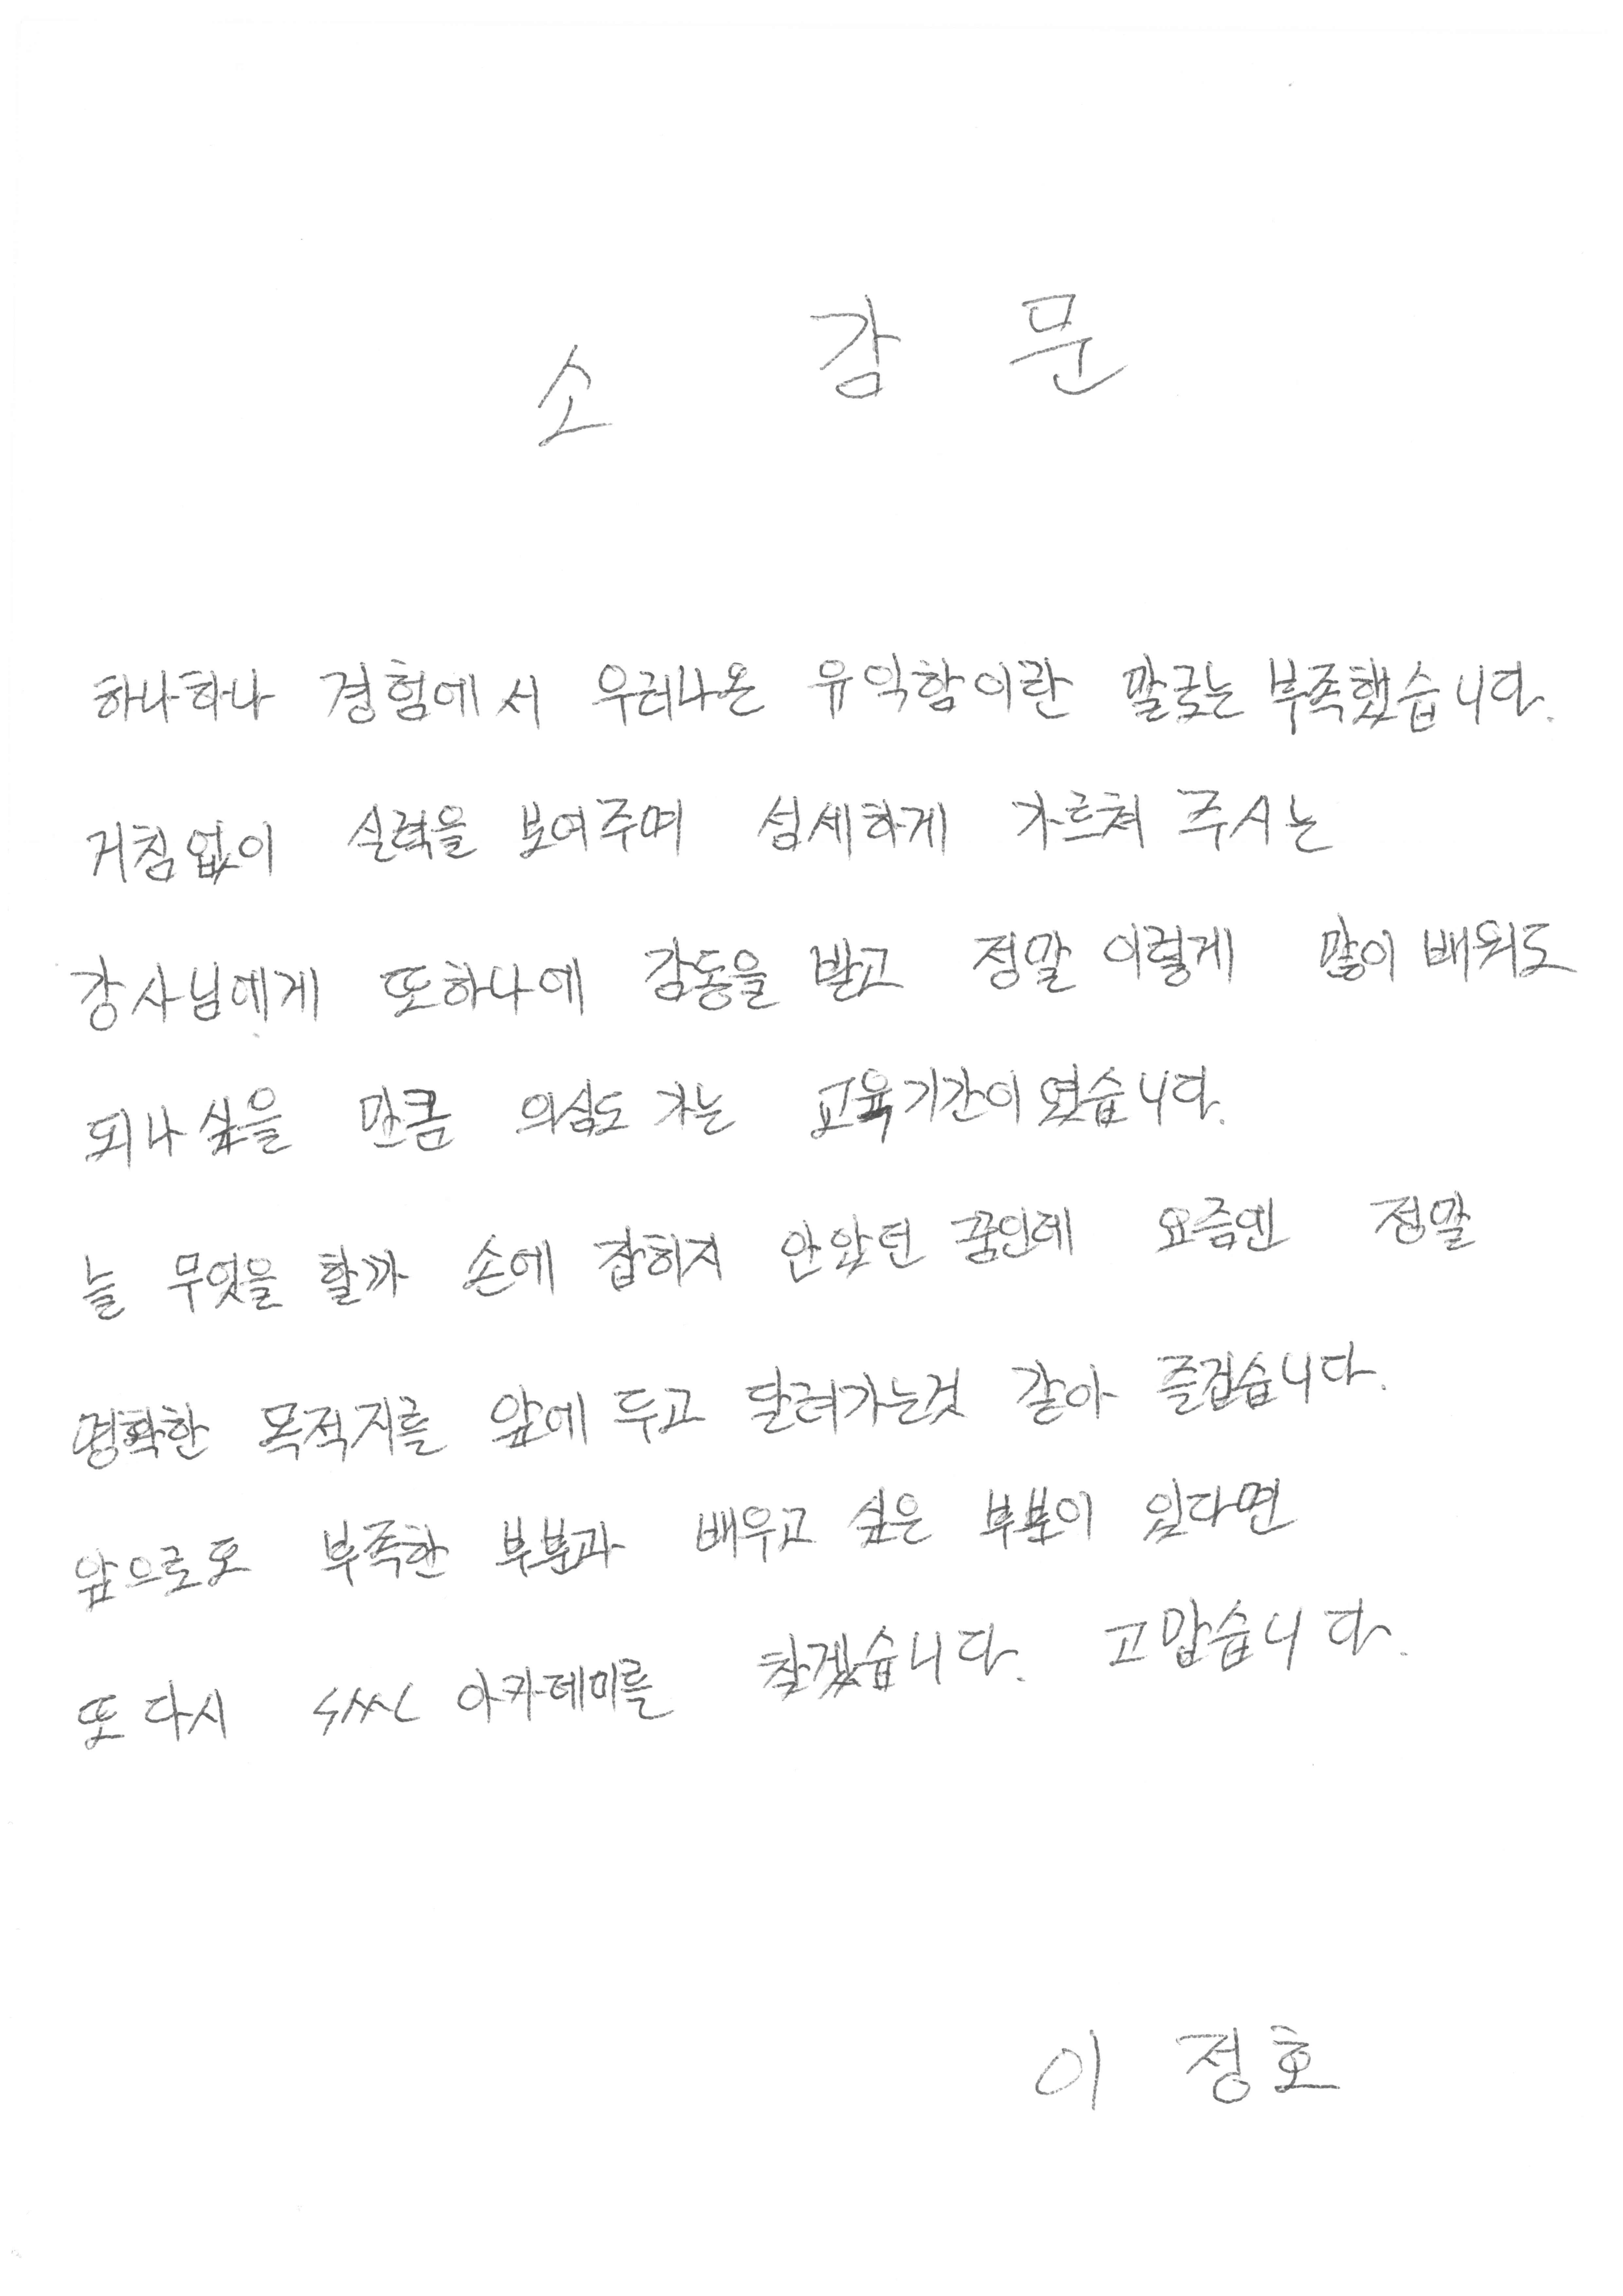 소 감 문
하나하나 경험에서 우러나온 유익함이란 말로는 부족했습니다.
거침없이 실력을 보여주며 섬세하게 가르쳐 주시는
강사님에게 또하나에 감동을 받고 정말 이렇게 많이 배워도
되나 싶을 만큼 의심도 가는 교육기간이였습니다.
늘 무엇을 할까 손에 잡히지 안았던 꿈인데 요즘엔 정말
명확한 목적지를 앞에 두고 달려가는것 같아 즐겁습니다.
앞으로도 부족한 부분과 배우고 싶은 부분이 있다면
또 다시 아카데미를 찾겠습니다. 고맙습니다.
이 정호